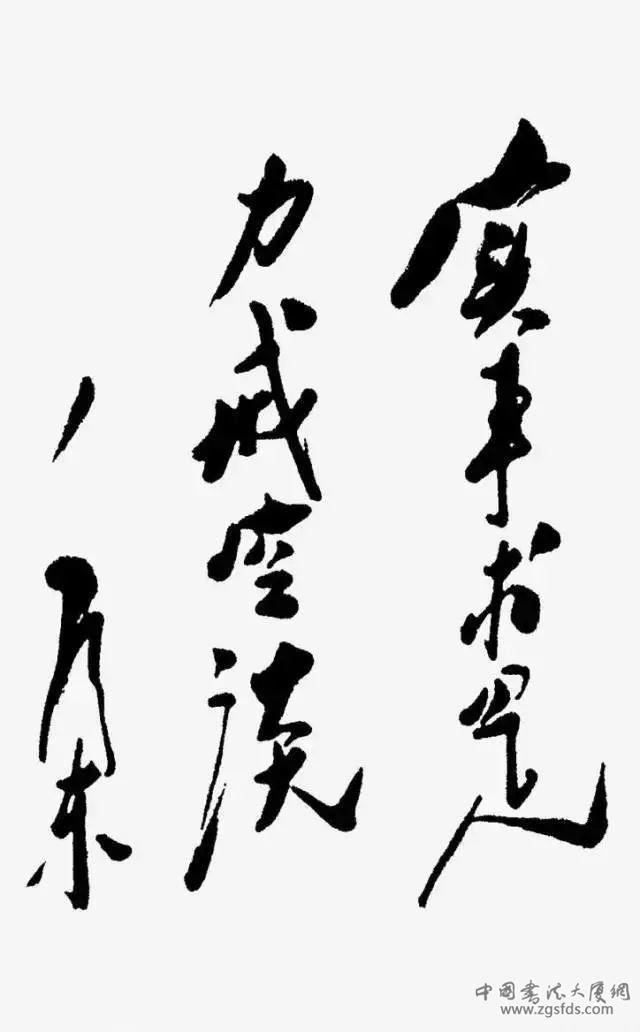 实事求是
力戒空谈
毛泽东
中国书法大厦網
www.zgsfds.com